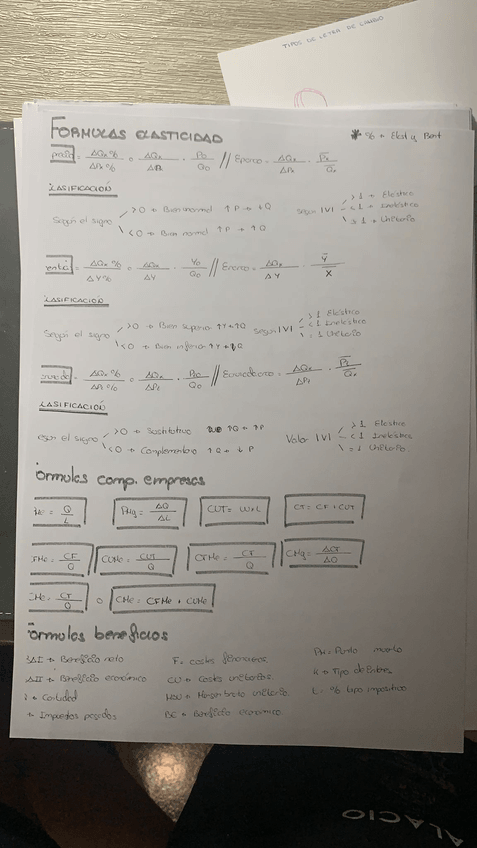 TIPOS DE LETRA DE CAMBIO
FORMULAS ELASTICIDAD
precio = ΔQx % / ΔPx % o ΔQx / ΔPx · P0 / Q0 // E arco = ΔQx / ΔPx · P̅x / Q̅x
LASIFICACIÓN
Según el signo > 0 → Bien normal ↑P → ↓Q
< 0 → Bien normal ↑P → ↑Q
Según |V| > 1 → Elástico
< 1 → Inelástico
= 1 → Unitario
renta = ΔQx % / ΔY % o ΔQx / ΔY · Y0 / Q0 // E arco = ΔQx / ΔY · Y̅ / X̅
LASIFICACIÓN
Según el signo > 0 → Bien superior ↑Y → ↑Q
< 0 → Bien inferior ↑Y → ↓Q
Según |V| > 1 Elástico
< 1 Inelástico
= 1 Unitario
= ΔQx % / ΔPz % o ΔQx / ΔPz · / Q0 // = ΔQx / ΔPz · P̅z / Q̅x
LASIFICACIÓN
el signo > 0 → Sustitutivo ↑Q → ↑P
< 0 → Complementario ↑Q → ↓P
Valor |V| > 1 Elástico
< 1 Inelástico
= 1 Unitario
órmulas comp. empresas
Me = Q / L
PMg = ΔQ / ΔL
CUT = W×L
CT = CF + CUT
FMe = CF / Q
CUMe = CUT / Q
CTMe = CT / Q
CMg = ΔCT / ΔQ
Me = CT / Q o CMe = CFMe + CUMe
órmulas beneficios
→ Beneficio neto
→ Beneficio económico
→ Cantidad
→ Impuestos pagados
F = costes
CU → Costes unitarios
→ Margen bruto unitario
→ Beneficio económico
PM = Punto muerto
K → Tipo de interés
t = % tipo impositivo
ALACIO